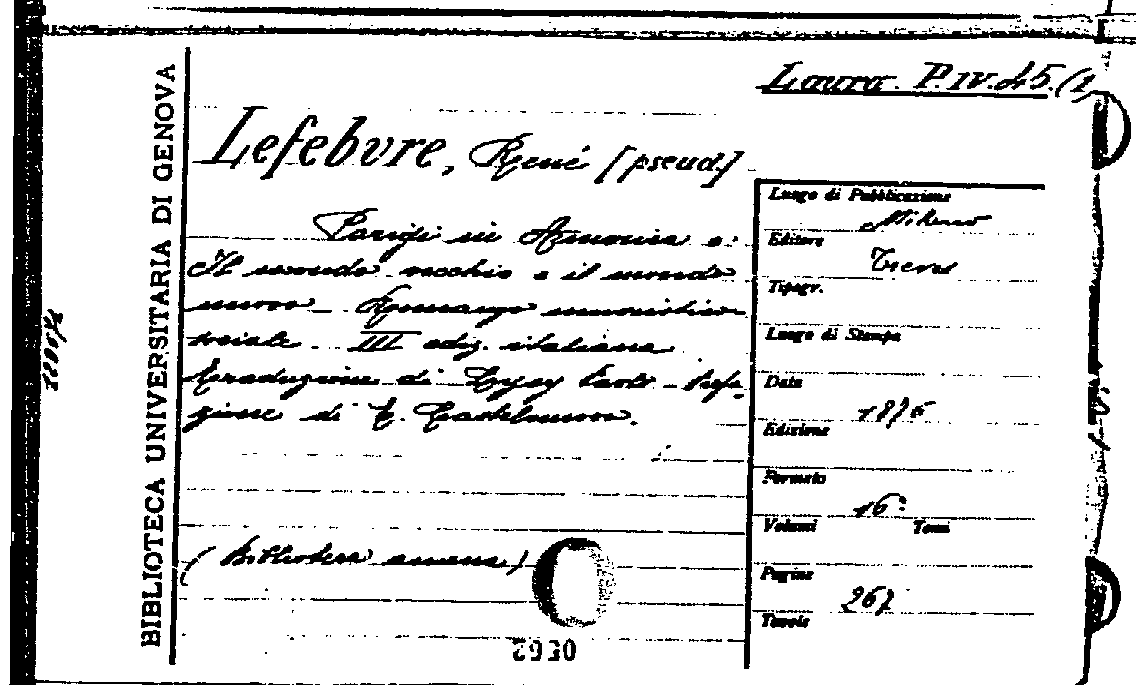 Laura. P.IV.45.(1
BIBLIOTECA UNIVERSITARIA DI GENOVA
Lefebvre, René [pseud.]
Parigi in America o:
Il mondo vecchio e il mondo
nuovo - Romanzo umoristico
sociale - III ediz. italiana
Traduzione di Paolo - Prefa-
zione di E. Castelnuovo.
(Biblioteca amena)
Luogo di Pubblicazione
Milano
Editore
Treves
Tipogr.
Luogo di Stampa
Data
1876
Edizione
Formato
16°
Volumi Tomi
Pagine
267
Tavole